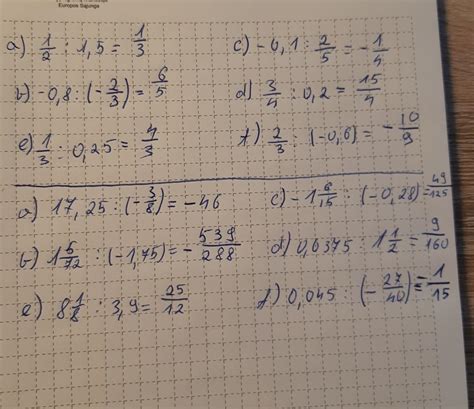 Europos Sąjunga
a) 1/2 : 1,5 = 1/3
c) -0,1 : 2/5 = -1/4
b) -0,8 : (-2/3) = 6/5
d) 3/4 : 0,2 = 15/4
e) 1/3 : 0,25 = 4/3
f) 2/3 : (-0,6) = -10/9
a) 17,25 : (-3/8) = -46
c) -1 6/15 : (-0,28) = 49/-125
b) 1 5/72 : (-1,75) = -539/288
d) 0,0375 : 1 1/2 = 9/160
e) 8 1/8 : 3,9 = 25/12
f) 0,045 : (-27/40) = -1/15